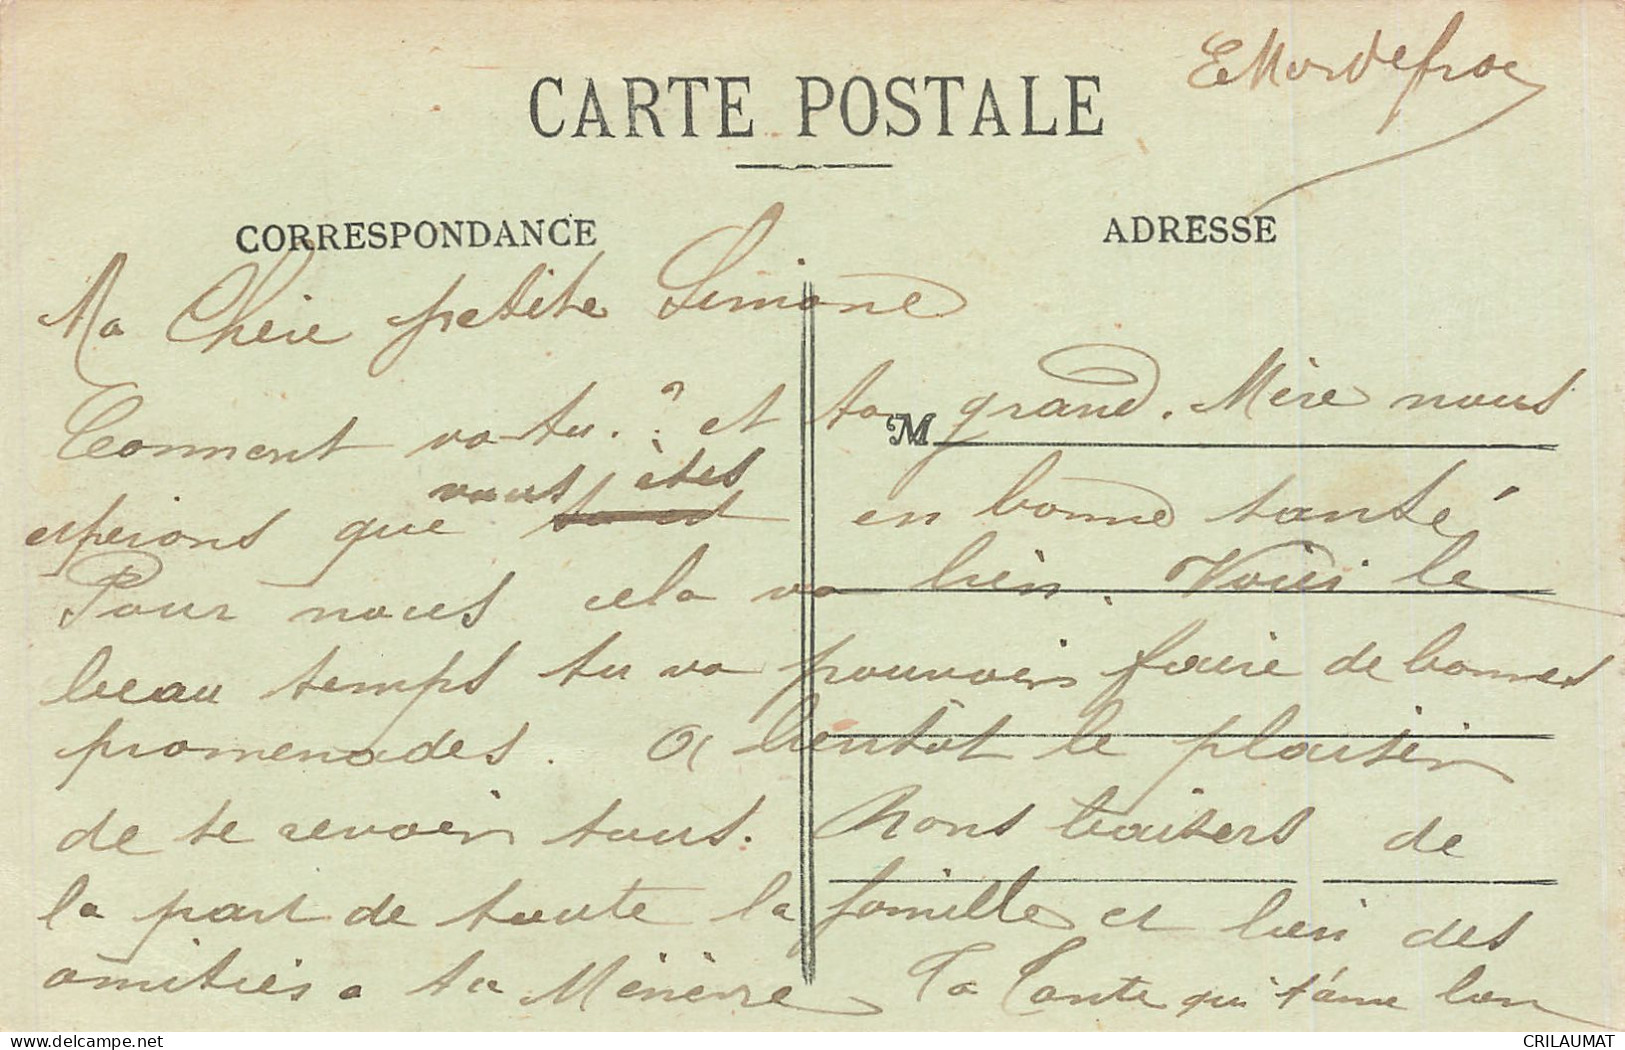 CARTE POSTALE
CORRESPONDANCE
ADRESSE
Ma Chère petite Simone
Comment va-tu.? et ta grand. Mère nous
M
vous êtes
esperions que en bonne santé,
Pour nous cela va bien. Voici le
beau temps tu va pouvoir faire de bonnes
promenades. A bientôt le plaisir
de te revoir tous. bons baisers de
la part de toute la famille et bien des
amitiés a ta Mémère Ta Tante qui t'aime bien
delcampe.net
CRILAUMAT